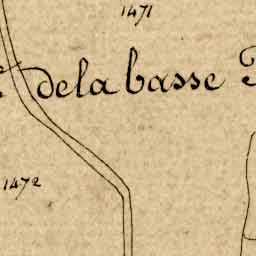 1471
de la basse
1472